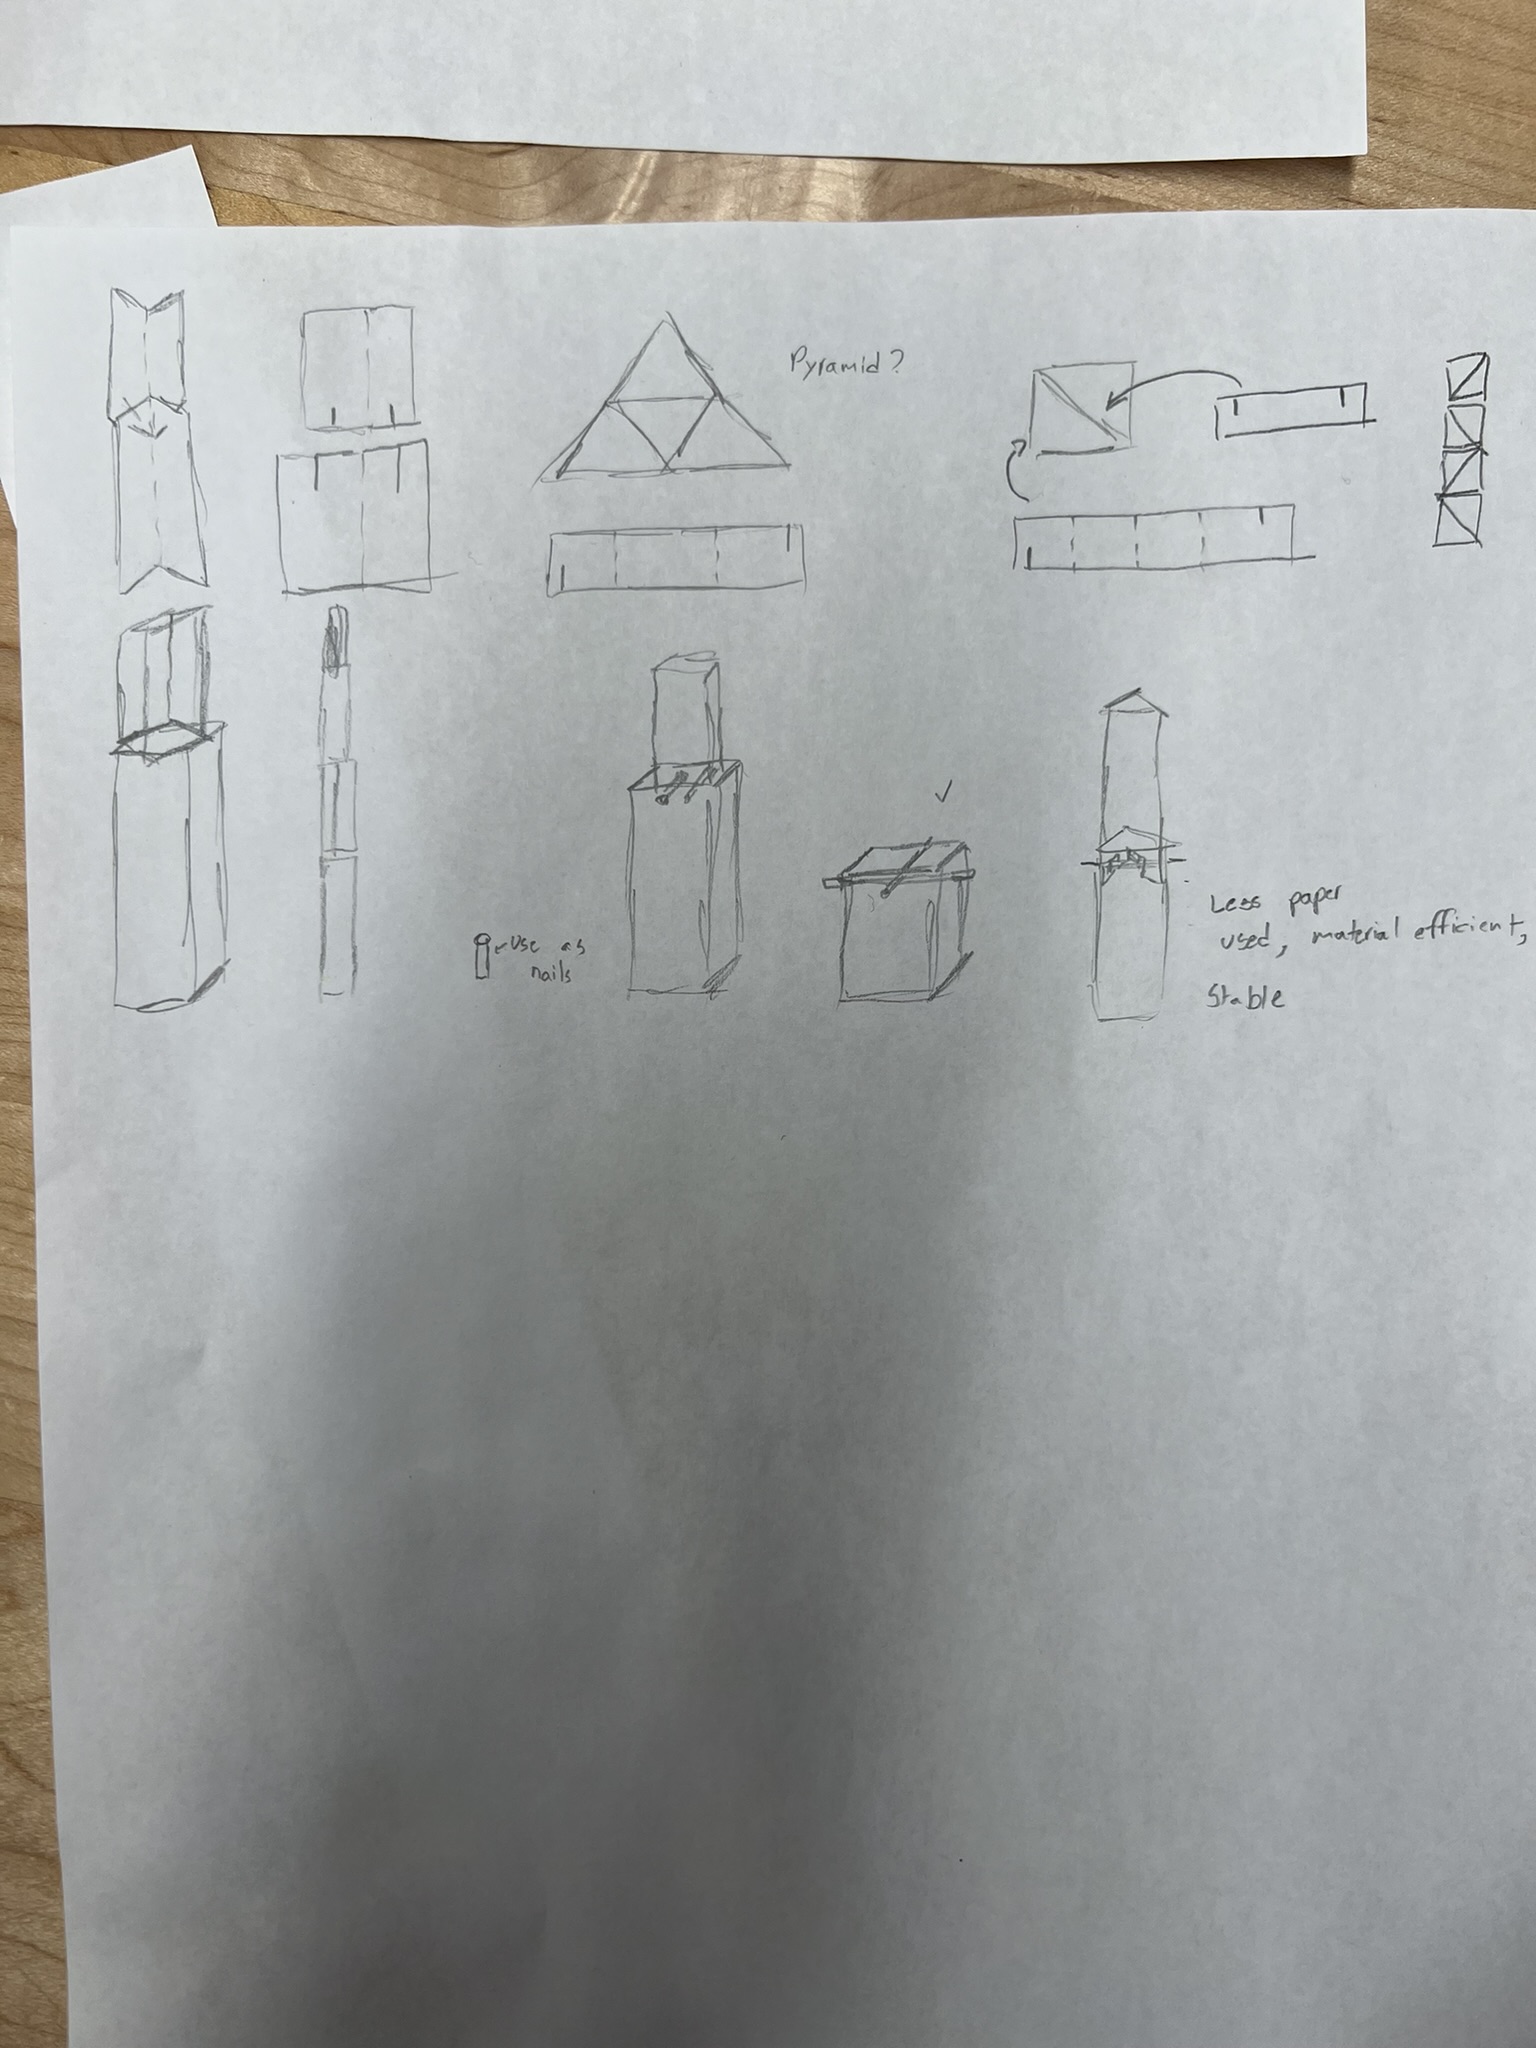 Pyramid?
use as
nails
Less paper
used, material efficient,
Stable